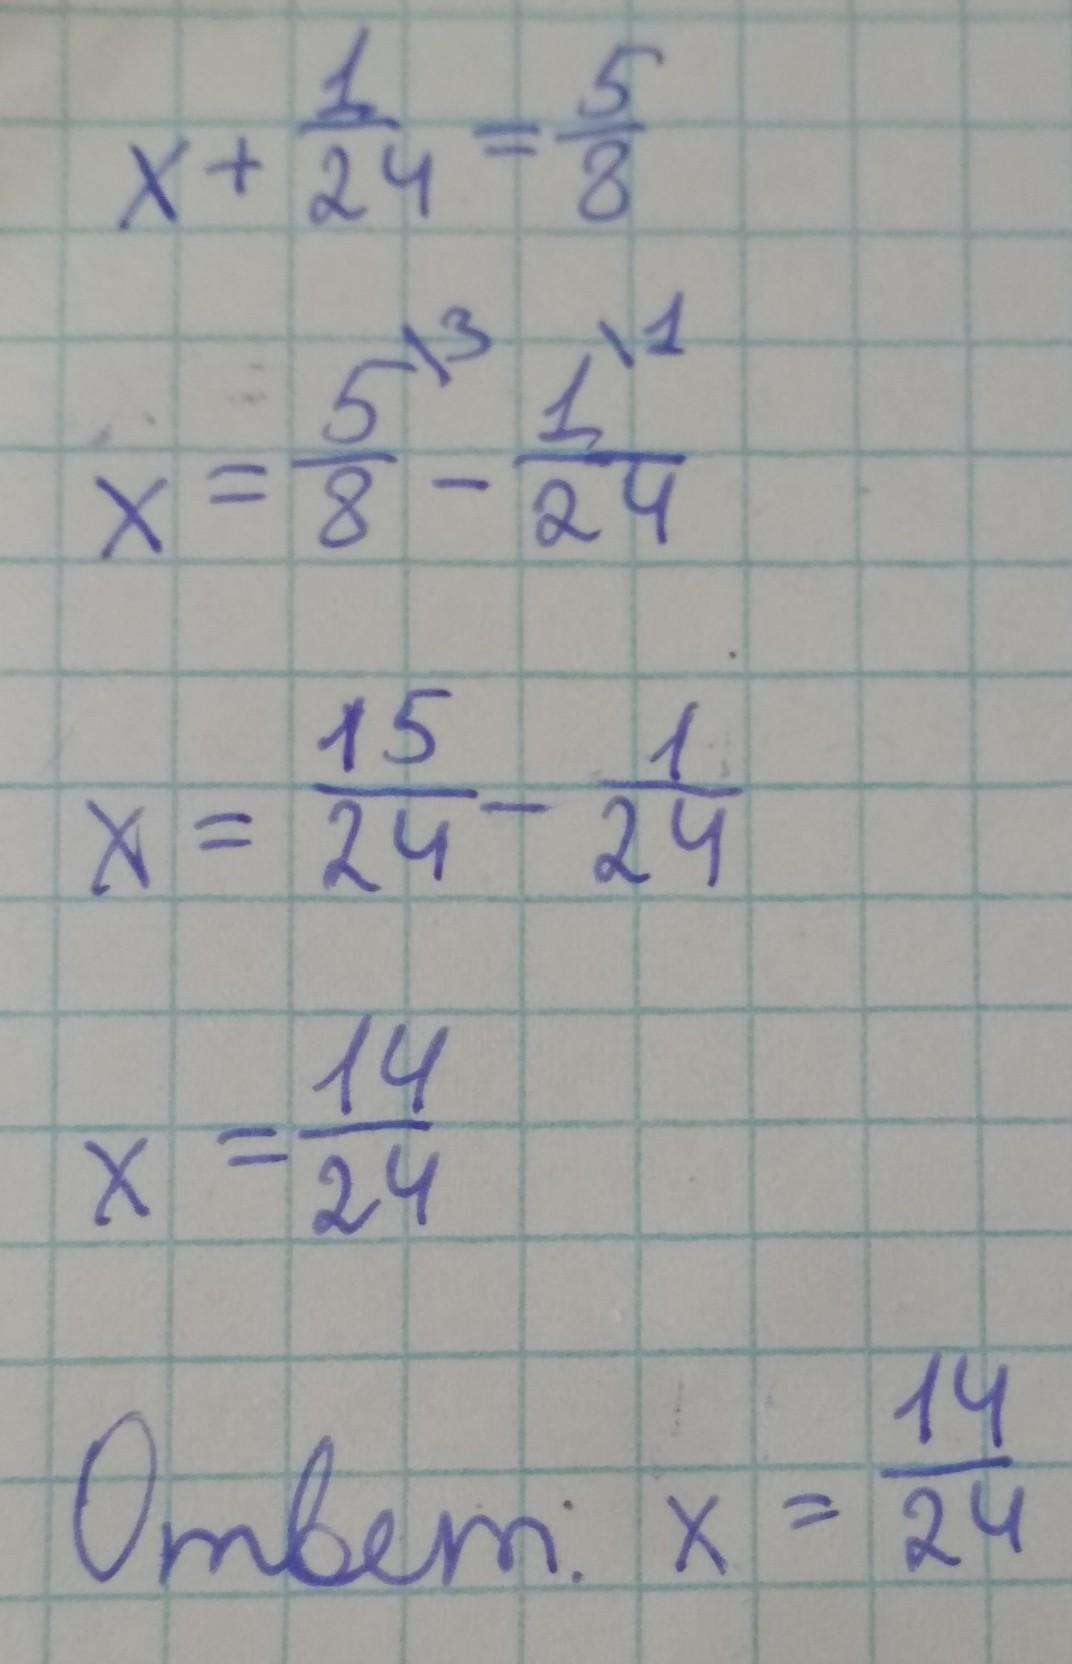 x + 1/24 = 5/8
x = 5/8 \3 - 1/24 \1
x = 15/24 - 1/24
x = 14/24
Ответ: x = 14/24